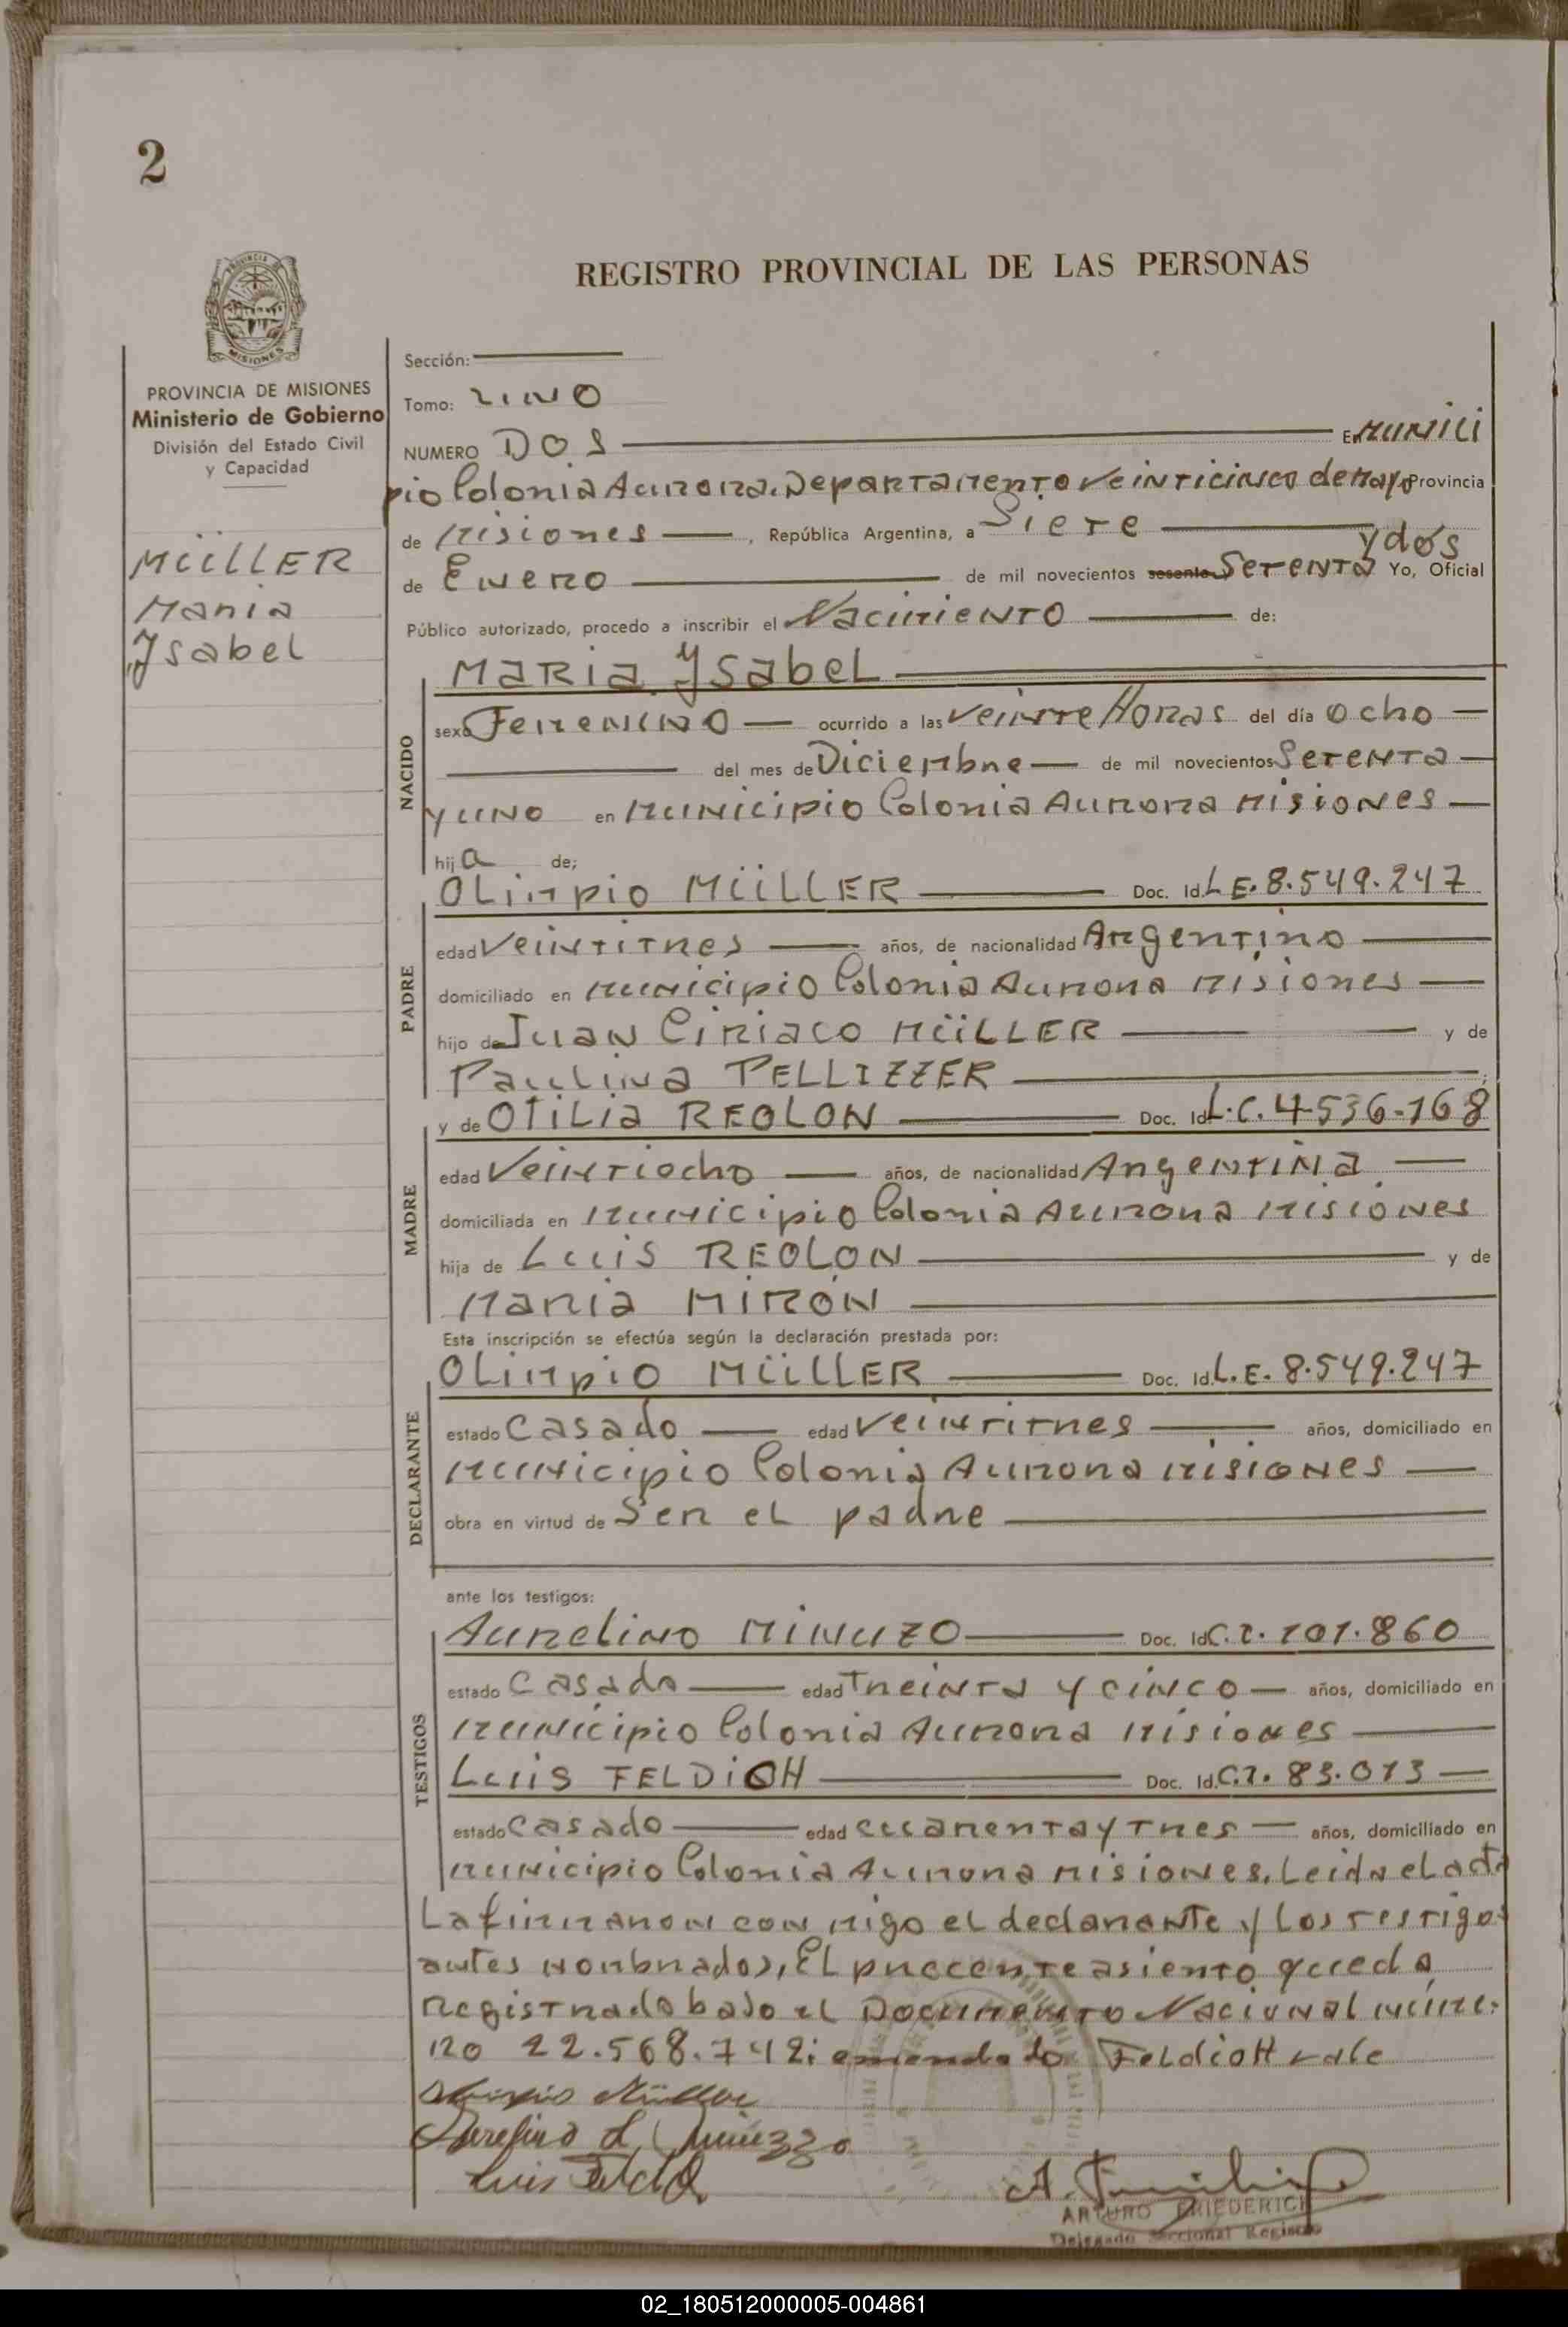 2
REGISTRO PROVINCIAL DE LAS PERSONAS
PROVINCIA DE MISIONES
Ministerio de Gobierno
División del Estado Civil
y Capacidad
MüLLER
Maria
Ysabel
Sección:
Tomo: UNO
NUMERO DOS En Munici
pio Colonia Aurora. Departamento Veinticinco de Mayo Provincia
de Misiones, República Argentina, a Siete
de Enero de mil novecientos sesenta Setenta y dós Yo, Oficial
Público autorizado, procedo a inscribir el Nacimiento de:
MARIA YSabeL
NACIDO
sexo Femenino ocurrido a las Veinte Horas del día ocho
del mes de Diciembre de mil novecientos Setenta
y uno en Municipio Colonia Aurora Misiones
hija de;
PADRE
OLimpio MüLLER Doc. Id. L E. 8.549.247
edad Veintitres años, de nacionalidad Argentino
domiciliado en Municipio Colonia Aurora Misiones
hijo de Juan Ciriaco MüLLER y de
Paulina PELLIZZER ;
MADRE
y de OTiLia REOLON Doc. Id. L.C. 4-536-168
edad Veintiocho años, de nacionalidad Argentina
domiciliada en Municipio Colonia Aurora Misiones
hija de Luis REOLON y de
Maria MIRÓN
Esta inscripción se efectúa según la declaración prestada por:
DECLARANTE
OLimpio MüLLER Doc. Id. L.E. 8.549.247
estado Casado edad Veintitres años, domiciliado en
Municipio Colonia Aurora Misiones
obra en virtud de Ser el padre
ante los testigos:
TESTIGOS
Aurelino MINUZO Doc. Id. C.I. 101.860
estado Casado edad Treinta y cinco años, domiciliado en
Municipio Colonia Aurora Misiones
Luis FELDIOH Doc. Id. C.I. 83.013
estado Casado edad Cuarenta y Tres años, domiciliado en
Municipio Colonia Aurora Misiones. Leida el acta
La firmaron con migo el declarante y los testigos
antes nombrados, EL precente asiento queda
Registrado bajo el Documento Nacional núme-
ro 22.568.742: emendado FeLdioH vale
Olimpio Müller
Aurelino
Luis
ARTURO FRIEDERICH
Delegado Seccional Registro
02_180512000005-004861